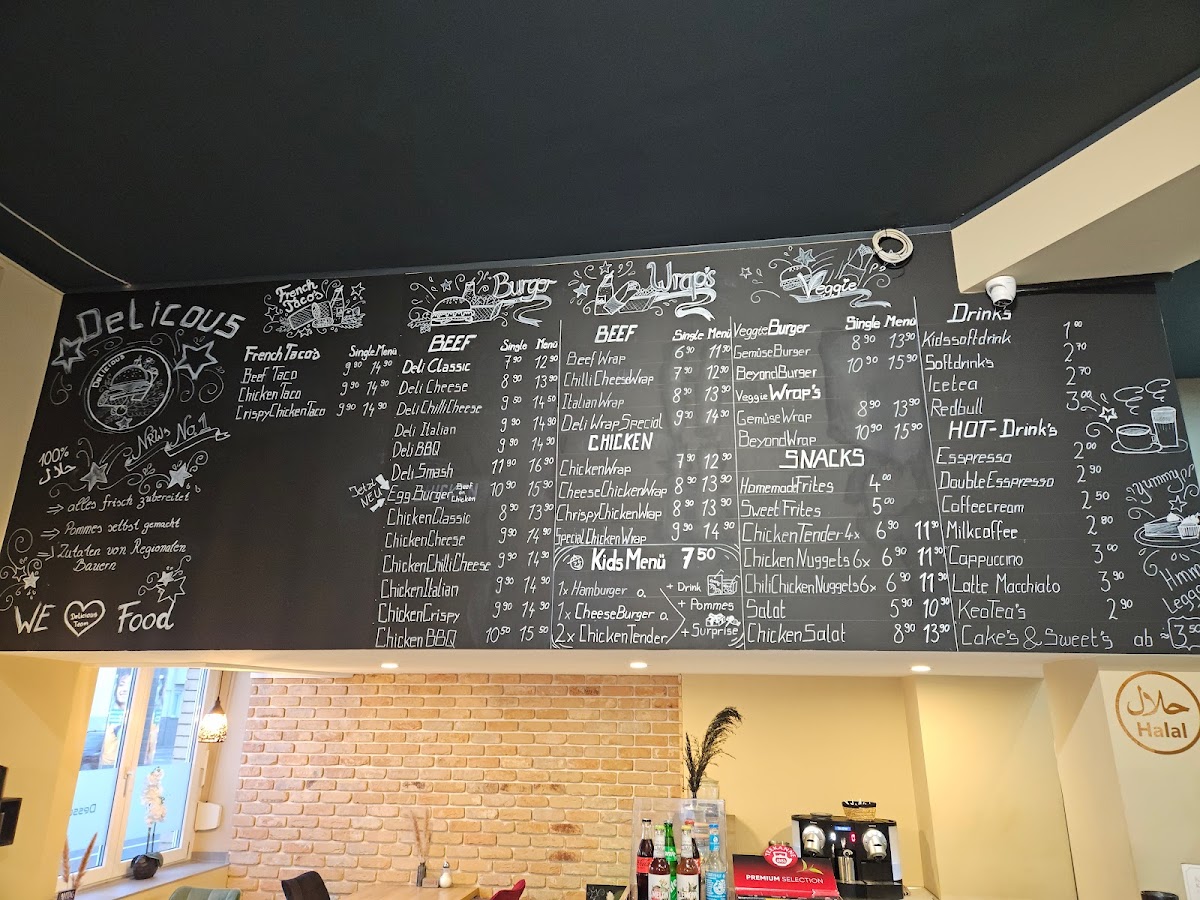 DELiCOUS
Delicious
NRWs No. 1
100%
حلال
→ alles frisch zubereitet
→ Pommes selbst gemacht
→ Zutaten von Regionalen
Bauern
WE Delicious Team Food
French
Taco's
French Taco's Single Menü
Beef Taco 9⁹⁰ 14⁹⁰
Chicken Taco 9⁹⁰ 14⁹⁰
Crispy Chicken Taco 9⁹⁰ 14⁹⁰
Burger
BEEF Single Menü
Deli Classic 7⁹⁰ 12⁹⁰
Deli Cheese 8⁹⁰ 13⁹⁰
Deli Chilli Cheese 9⁹⁰ 14⁵⁰
Deli Italian 9⁹⁰ 14⁹⁰
Deli BBQ 9⁹⁰ 14⁹⁰
Deli Smash 11⁹⁰ 16⁹⁰
Jetzt NEU Egg Burger Beef or Chicken 10⁹⁰ 15⁹⁰
Chicken Classic 8⁹⁰ 13⁹⁰
Chicken Cheese 9⁹⁰ 14⁹⁰
Chicken Chilli Cheese 9⁹⁰ 14⁹⁰
Chicken Italian 9⁹⁰ 14⁹⁰
Chicken Crispy 9⁹⁰ 14⁹⁰
Chicken BBQ 10⁵⁰ 15⁵⁰
Wrap's
BEEF Single Menü
Beef Wrap 6⁹⁰ 11⁹⁰
Chilli Cheese Wrap 7⁹⁰ 12⁹⁰
Italian Wrap 8⁹⁰ 13⁹⁰
Deli Wrap Special 9⁹⁰ 14⁹⁰
CHICKEN
Chicken Wrap 7⁹⁰ 12⁹⁰
Cheese Chicken Wrap 8⁹⁰ 13⁹⁰
Chrispy Chicken Wrap 8⁹⁰ 13⁹⁰
Special Chicken Wrap 9⁹⁰ 14⁹⁰
Kids Menü 7⁵⁰
1x Hamburger o. + Drink
1x CheeseBurger o. + Pommes
2x ChickenTender + Surprise
Veggie
Veggie Burger Single Menü
Gemüse Burger 8⁹⁰ 13⁹⁰
Beyond Burger 10⁹⁰ 15⁹⁰
Veggie Wrap's
Gemüse Wrap 8⁹⁰ 13⁹⁰
Beyond Wrap 10⁹⁰ 15⁹⁰
SNACKS
Homemade Frites 4⁰⁰
Sweet Frites 5⁰⁰
Chicken Tender 4x 6⁹⁰ 11⁹⁰
Chicken Nuggets 6x 6⁹⁰ 11⁹⁰
Chili Chicken Nuggets 6x 6⁹⁰ 11⁹⁰
Salat 5⁹⁰ 10⁹⁰
Chicken Salat 8⁹⁰ 13⁹⁰
Drinks
Kidssoftdrink 1⁰⁰
Softdrink's 2⁷⁰
Icetea 2⁷⁰
Redbull 3⁰⁰
HOT-Drink's
Esspresso 2⁰⁰
Double Esspresso 2⁹⁰
Coffeecream 2⁵⁰
Milkcaffee 2⁸⁰
Cappuccino 3⁰⁰
Latte Macchiato 3⁹⁰
KeaTea's 2⁹⁰
Cake's & Sweet's ab 3⁵⁰
Yummy
Hmm
حلال
Halal
PREMIUM SELECTION